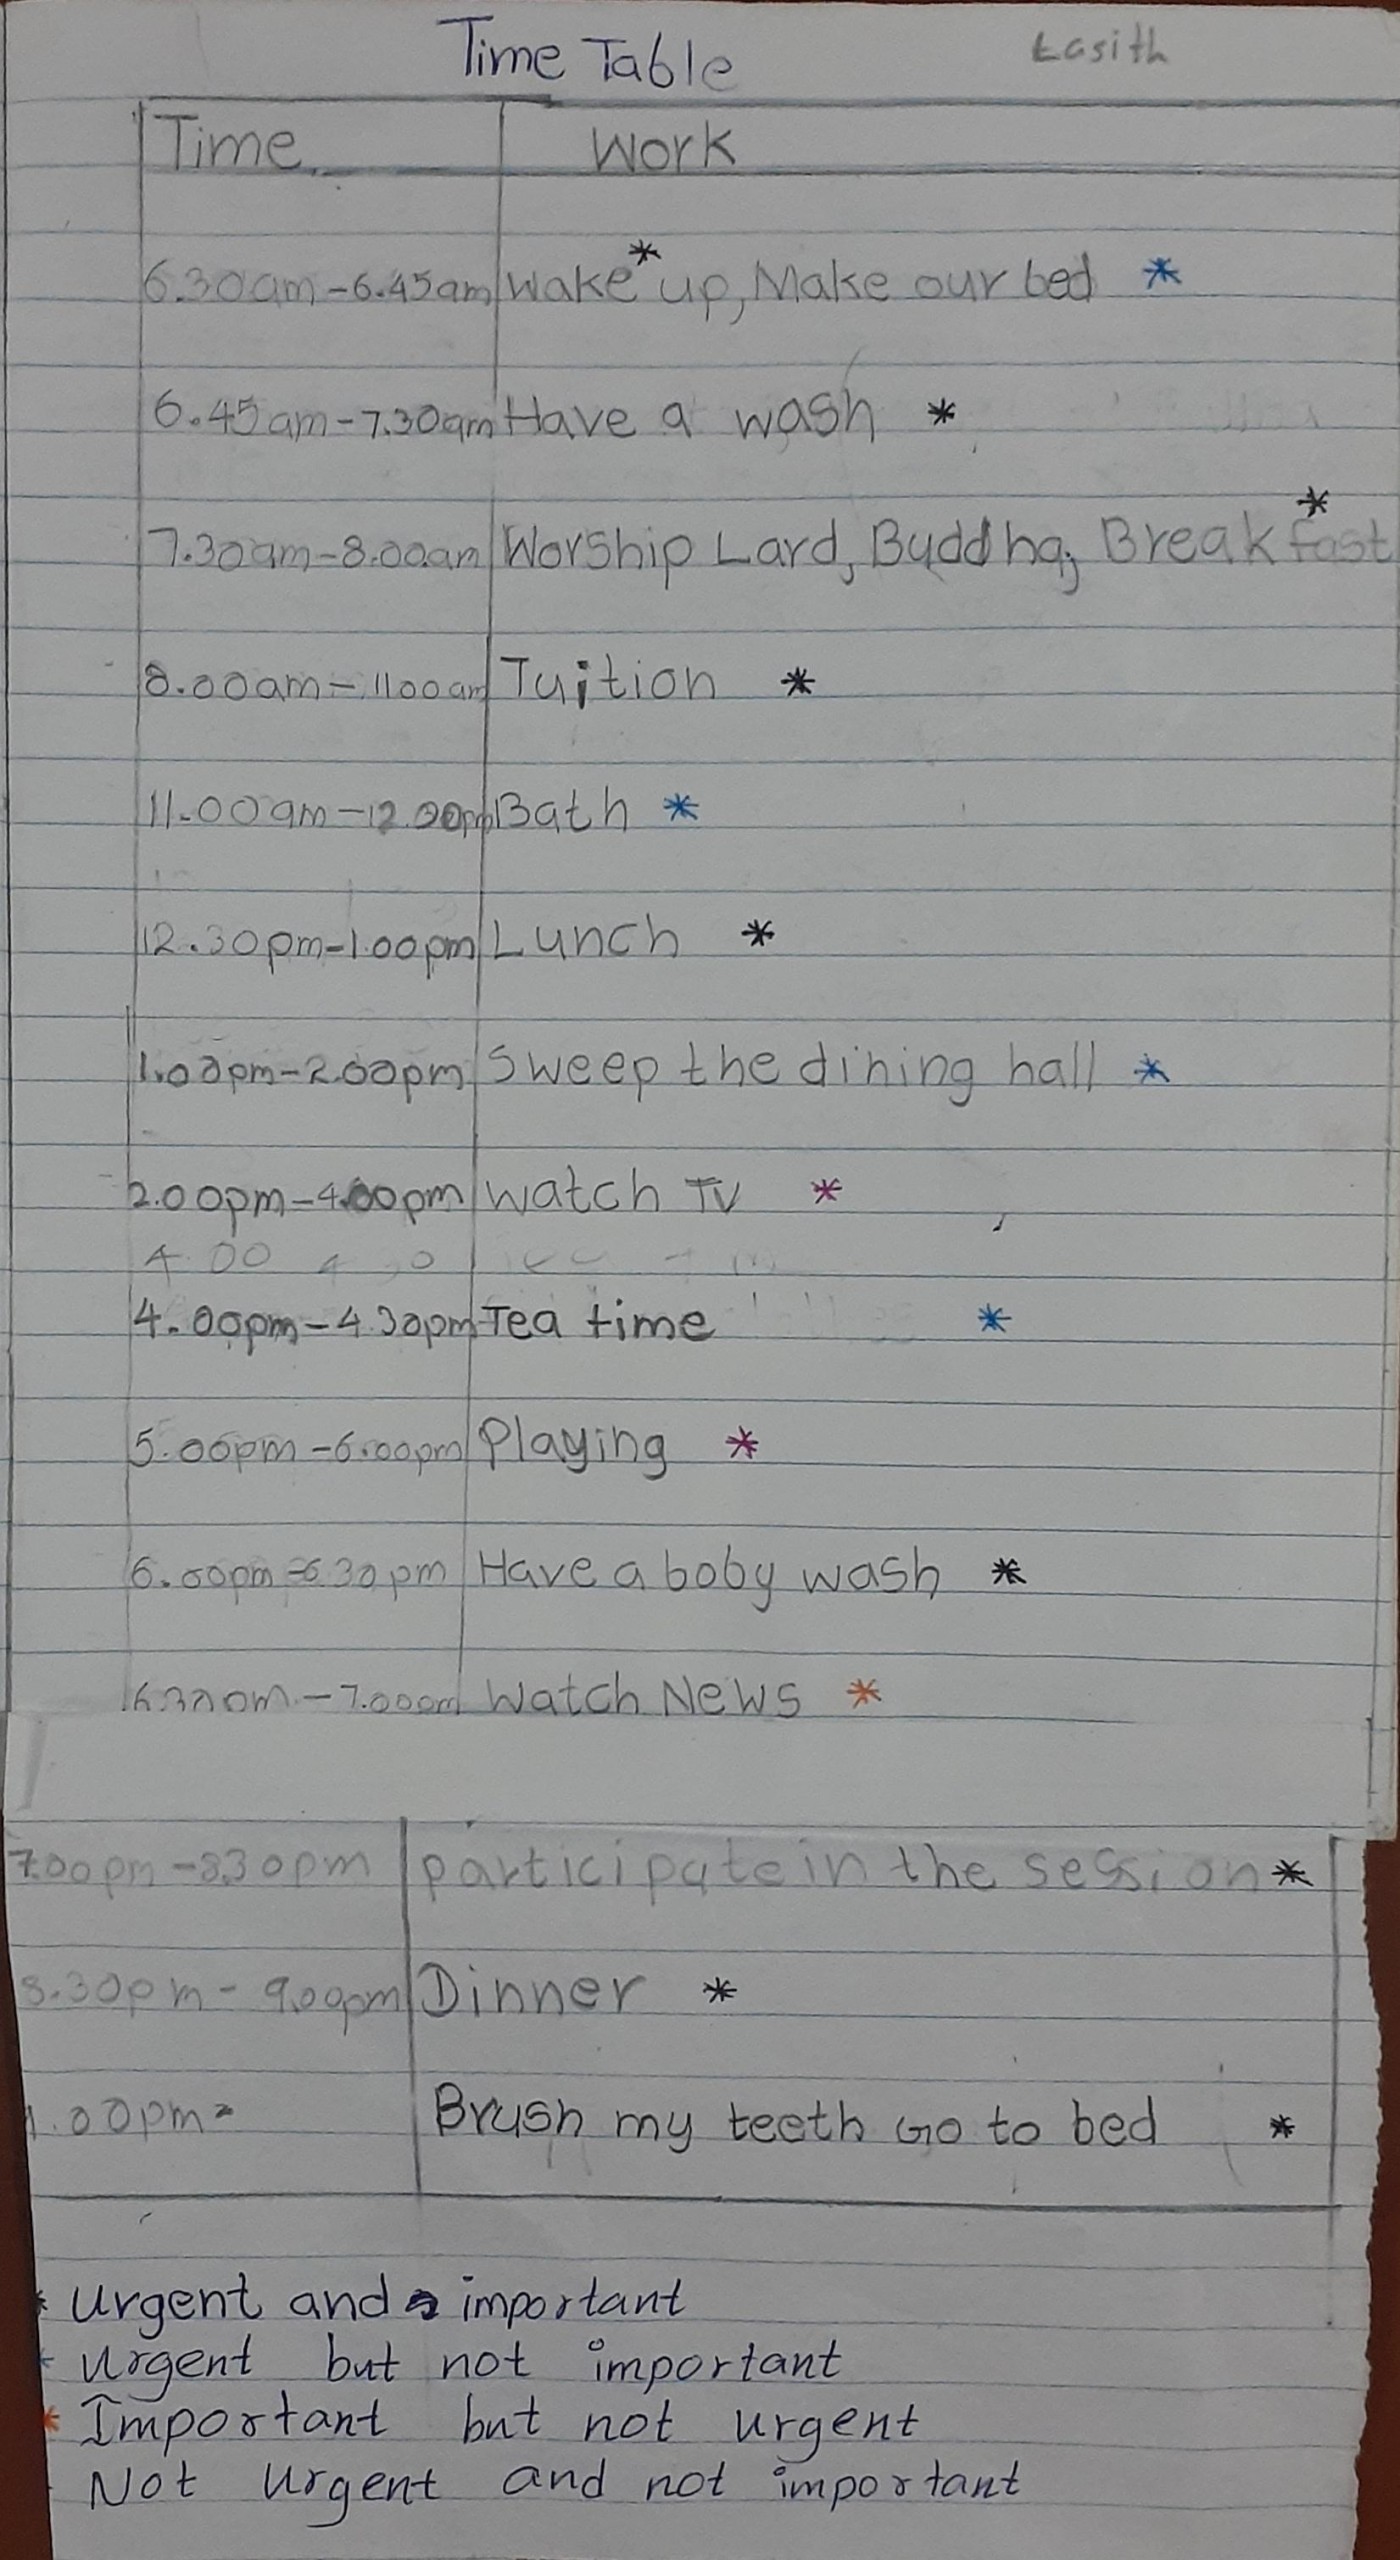 Time Table Lasith
Time Work
6.30am-6.45am Wake up, Make our bed *
*
6.45am-7.30am Have a wash *
7.30am-8.00am Worship Lard, Buddha, Breakfast
*
8.00am-11.00am Tuition *
11.00am-12.00pm Bath *
12.30pm-1.00pm Lunch *
1.00pm-2.00pm Sweep the dining hall *
2.00pm-4.00pm Watch TV *
4.00pm-4.30pm Tea time *
5.00pm-6.00pm Playing *
6.00pm-6.30pm Have a boby wash *
6.30pm-7.00pm Watch News *
7.00pm-8.30pm participate in the session *
8.30pm-9.00pm Dinner *
.00pm- Brush my teeth Go to bed *
* Urgent and important
* Urgent but not important
* Important but not urgent
Not urgent and not important